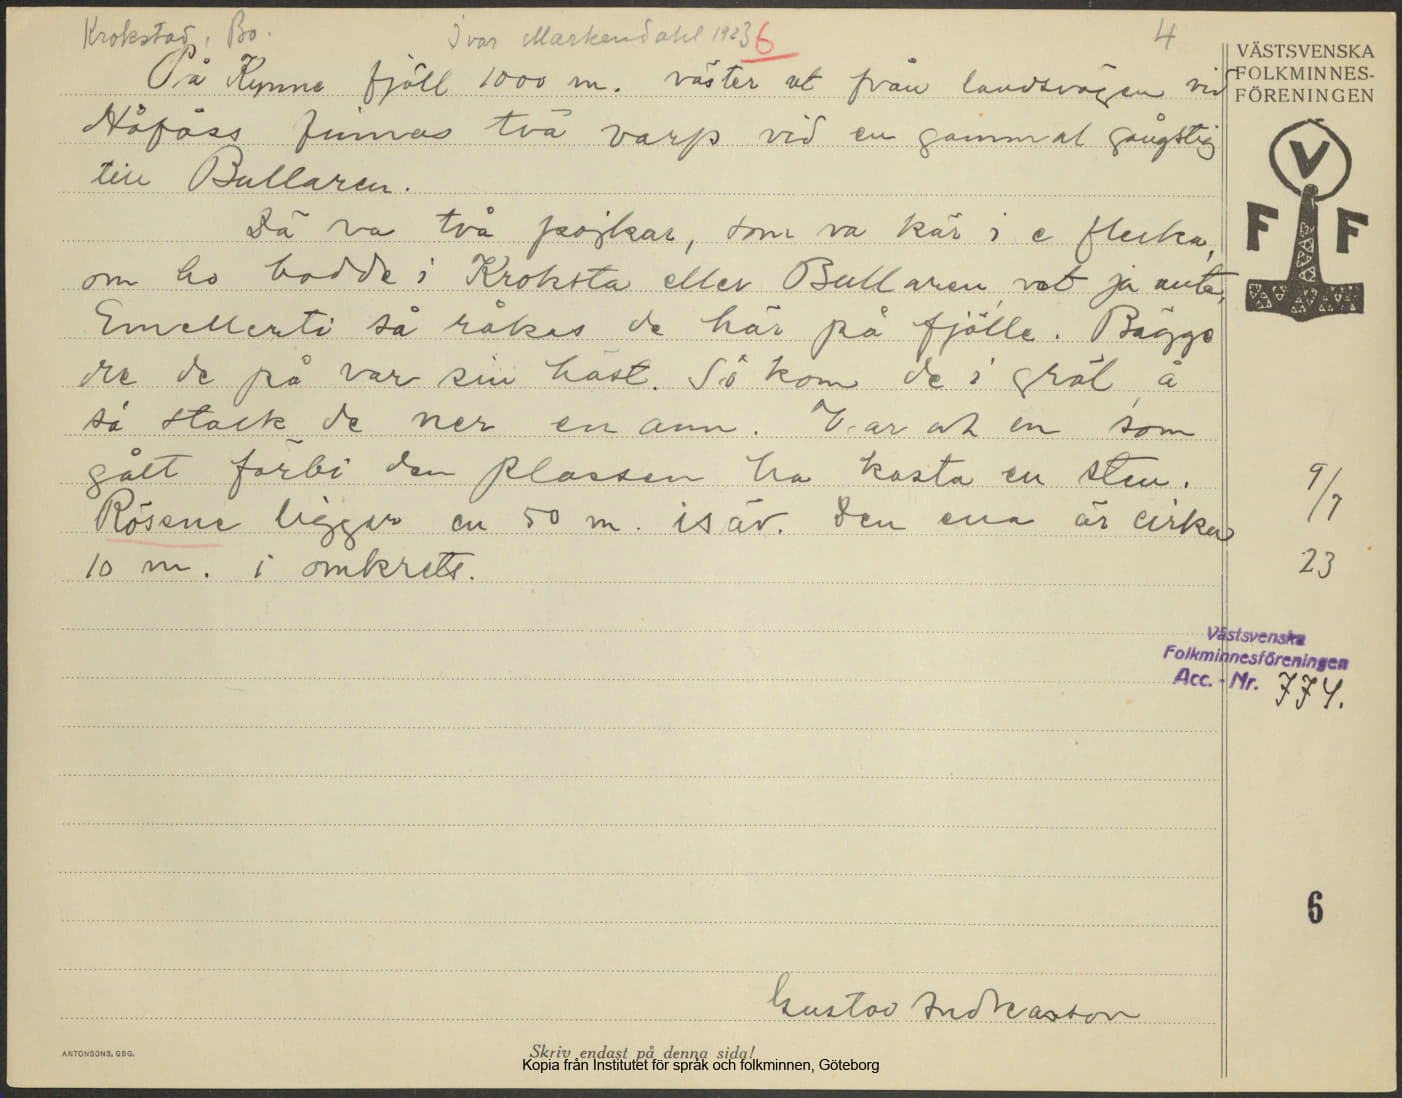 Krokstad, Bo.
Ivar Markendahl 1923
6
4
På Kynne fjäll 1000 m. väster ut från landsvägen vid
Håfåss finnas två varp vid en gammal gångstig
till Bullaren.
Dä va två pojkar, som va kär i e flecka,
om ho bodde i Kroksta eller Bullaren, vet ja ente,
Emellerti så råkas de här på fjälle. Bägge
re de på var sin häst. Så kom de i gräl, å
så stack de ner en ann. Var ok en som
gått förbi den plassen ha kasta en sten.
Rösene ligger en 50 m. isäv. Den ena är cirka
10 m. i omkrets.
Gustav Andreasson
VÄSTSVENSKA
FOLKMINNES-
FÖRENINGEN
V
F F
9/7
23
Västsvenska
Folkminnesföreningen
Acc. - Nr. 774.
6
ANTONSONS, GBG.
Skriv endast på denna sida!
Kopia från Institutet för språk och folkminnen, Göteborg